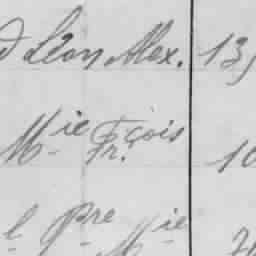 d Léon Alex. 13
Mie Frçois 10
l Pre Mie